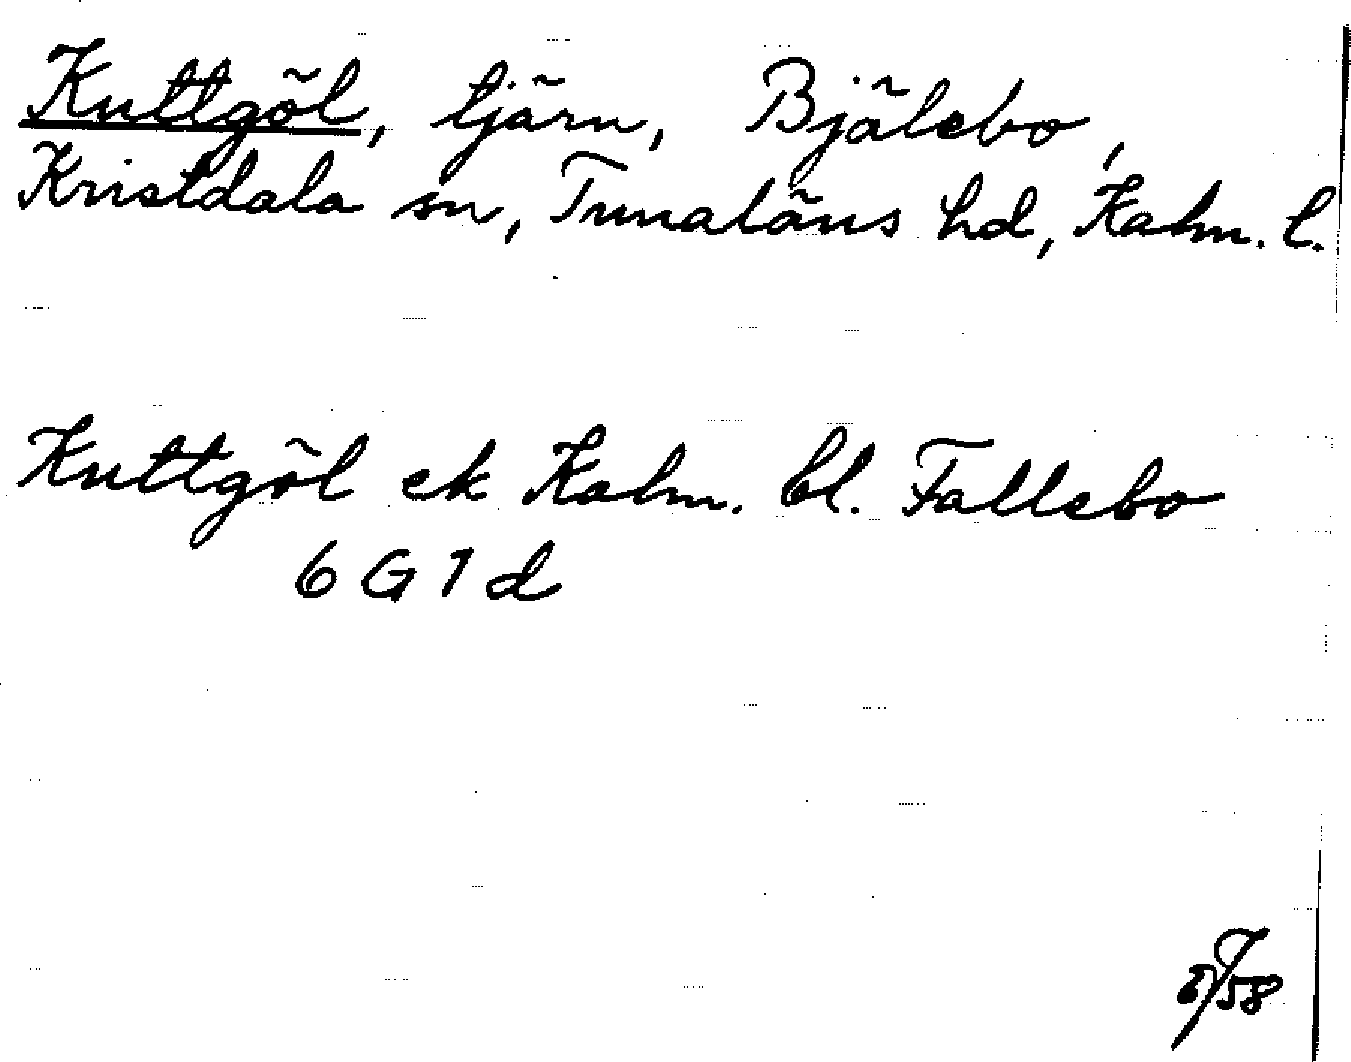 Kuttgöl, tjärn, Bjälebo,
Kristdala sn, Tunaläns hd, Kalm. l.
Kuttgöl ek Kalm. bl. Fallebo
6 G 7 d